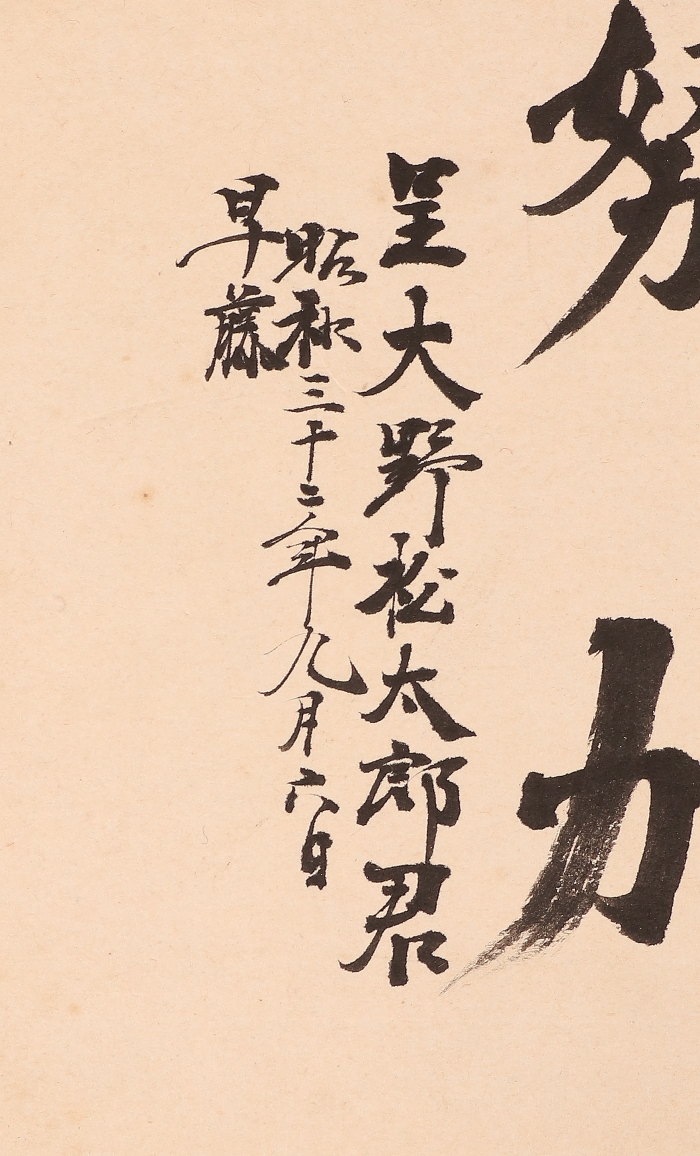 努力
呈大野松太郎君
昭和三十二年九月六日
早藤